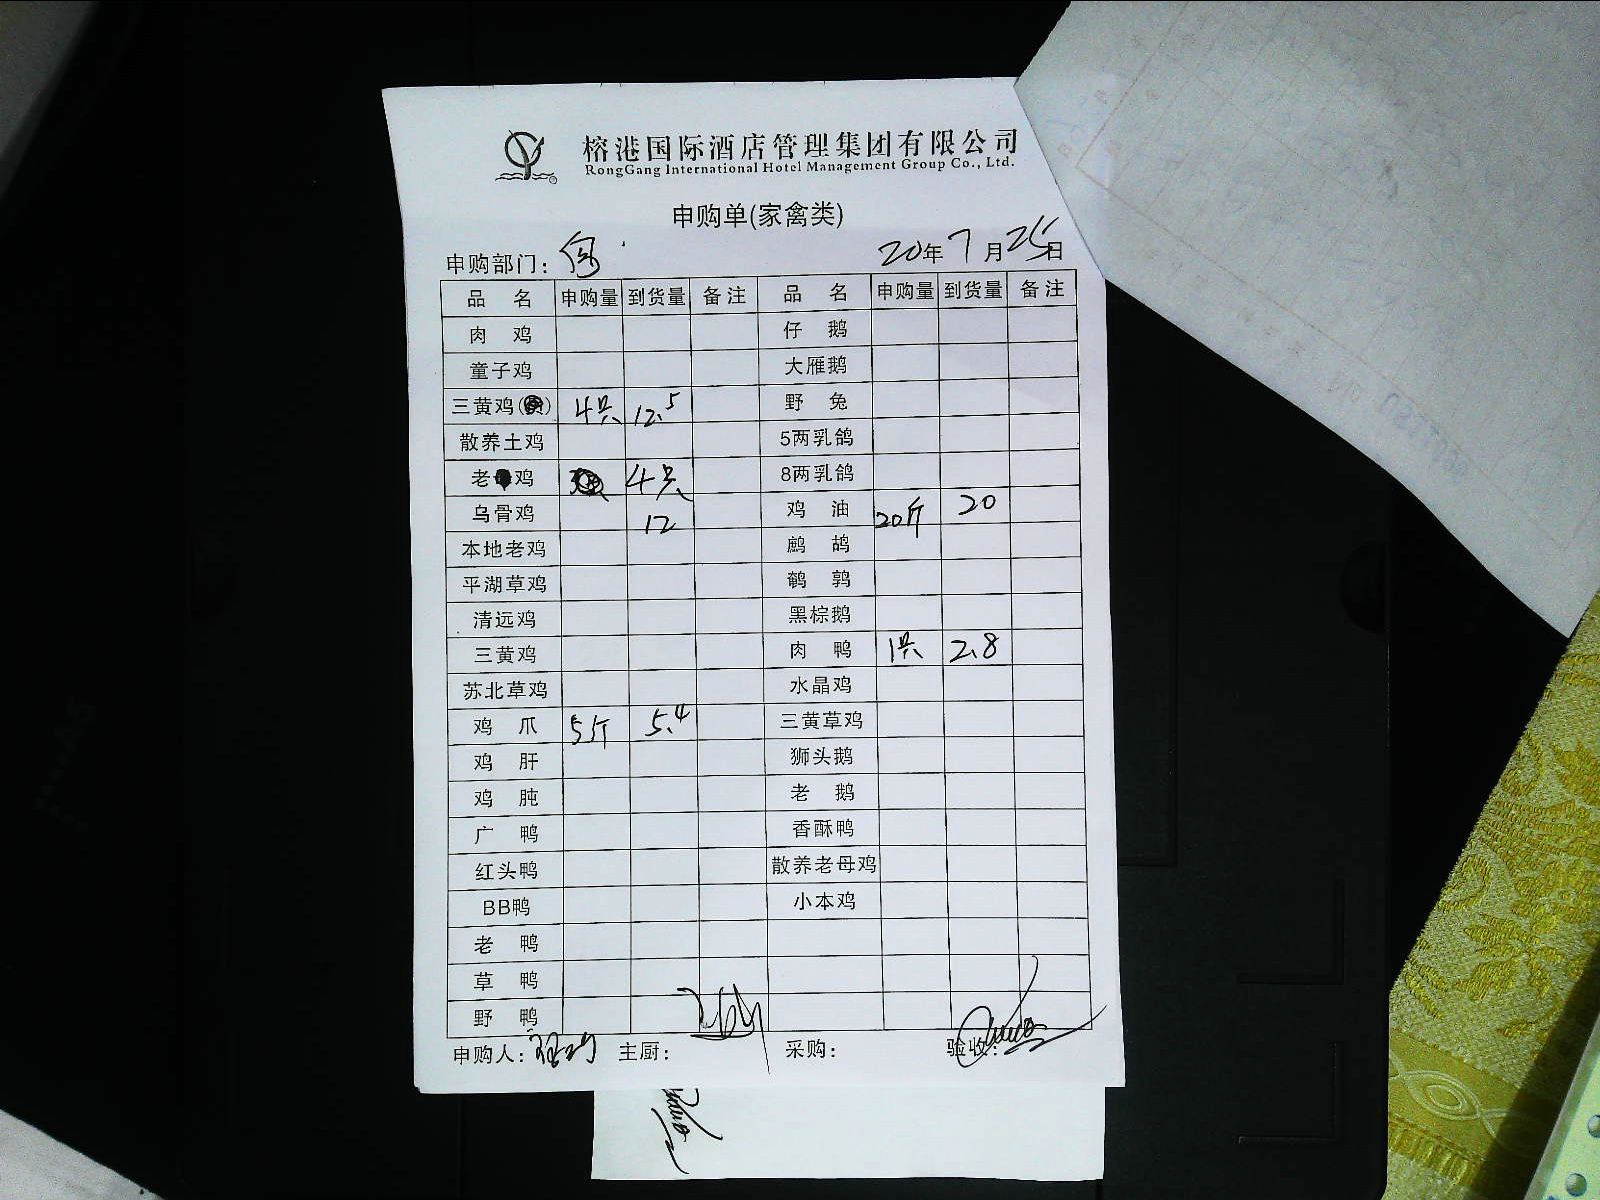 榕港国际酒店管理集团有限公司
RongGang International Hotel Management Group Co., Ltd.
申购单(家禽类)
申购部门: 20年7月25日
品 名 申购量 到货量 备注 品 名 申购量 到货量 备注
肉 鸡 仔 鹅
童子鸡 大雁鹅
三黄鸡() 4只 12.5 野 兔
散养土鸡 5两乳鸽
老鸡 4只 8两乳鸽
乌骨鸡 12 鸡 油 20斤 20
本地老鸡 鹧 鸪
平湖草鸡 鹌 鹑
清远鸡 黑棕鹅
三黄鸡 肉 鸭 1只 2.8
苏北草鸡 水晶鸡
鸡 爪 5斤 5.4 三黄草鸡
鸡 肝 狮头鹅
鸡 肫 老 鹅
广 鸭 香酥鸭
红头鸭 散养老母鸡
BB鸭 小本鸡
老 鸭
草 鸭
野 鸭
申购人: 主厨: 采购: 验收: